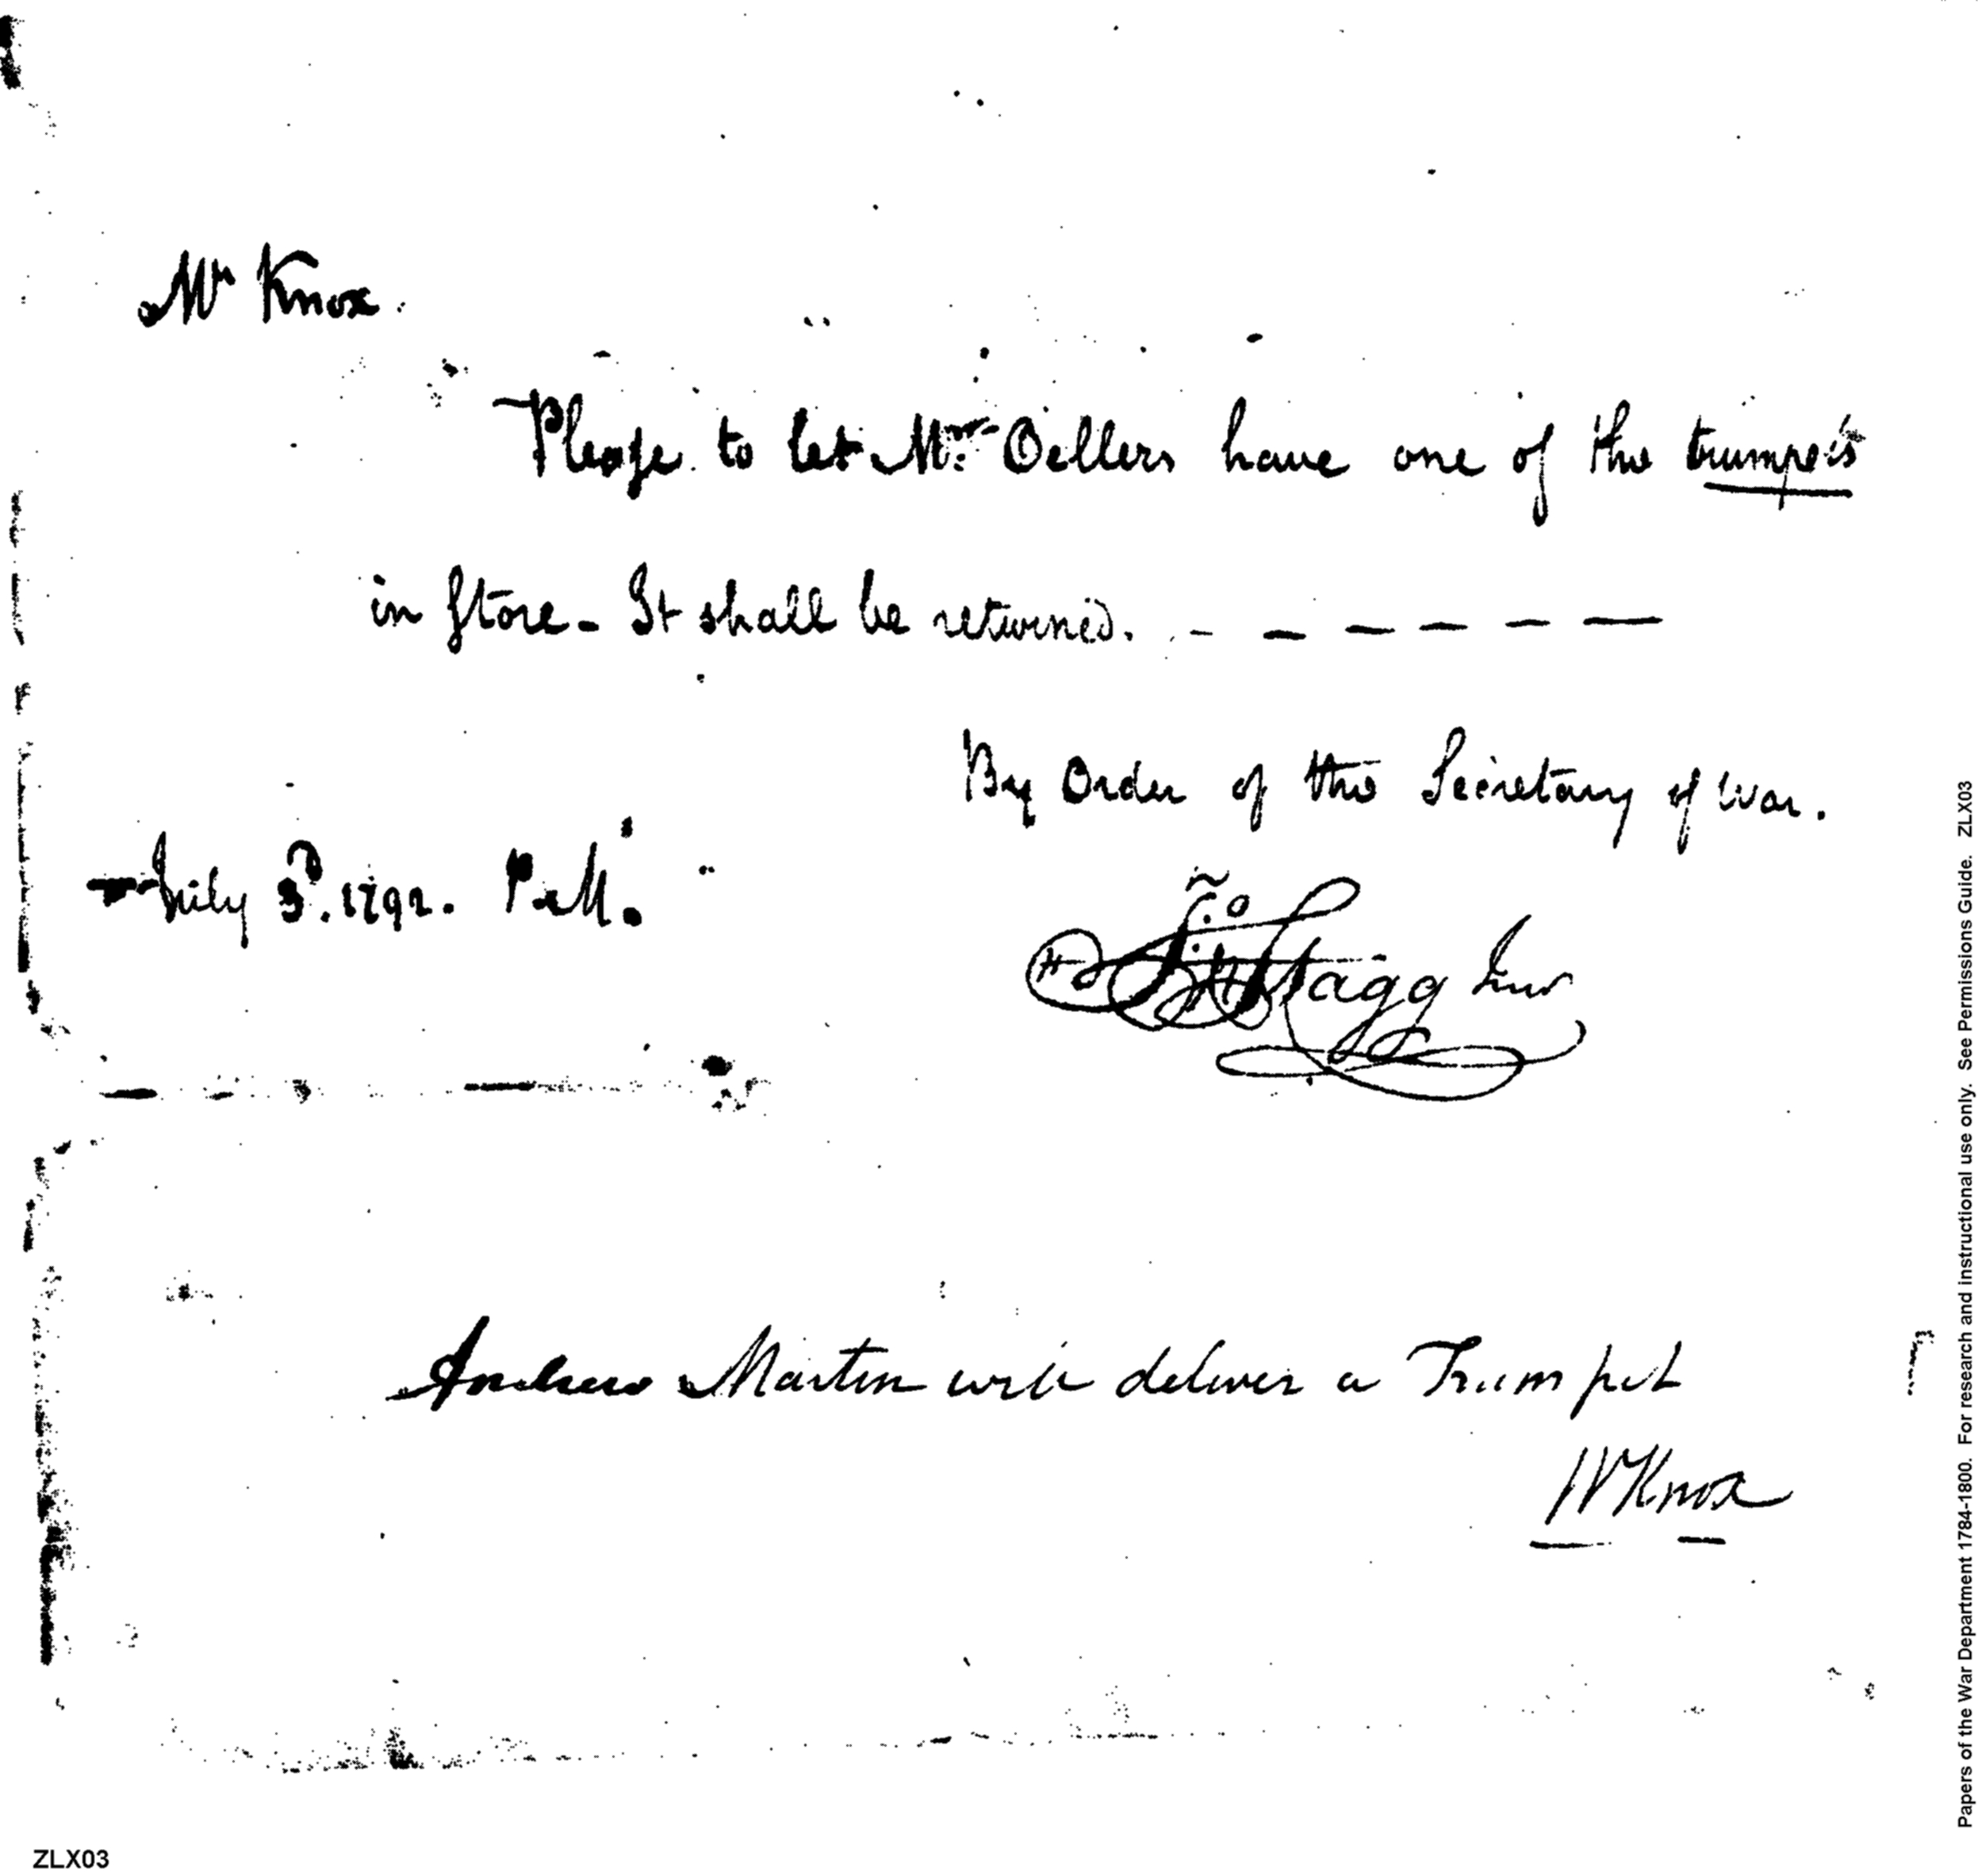 Mr Knox.
Please to let Mr. Oellers have one of the trumpets
in Store - It shall be returned. - - - - - -
By Order of the Secretary of War.
July 3d. 1792. P.M.
Jno Stagg Junr
Andrew Martin will deliver a Trumpet
W Knox
ZLX03
Papers of the War Department 1784-1800. For research and instructional use only. See Permissions Guide. ZLX03